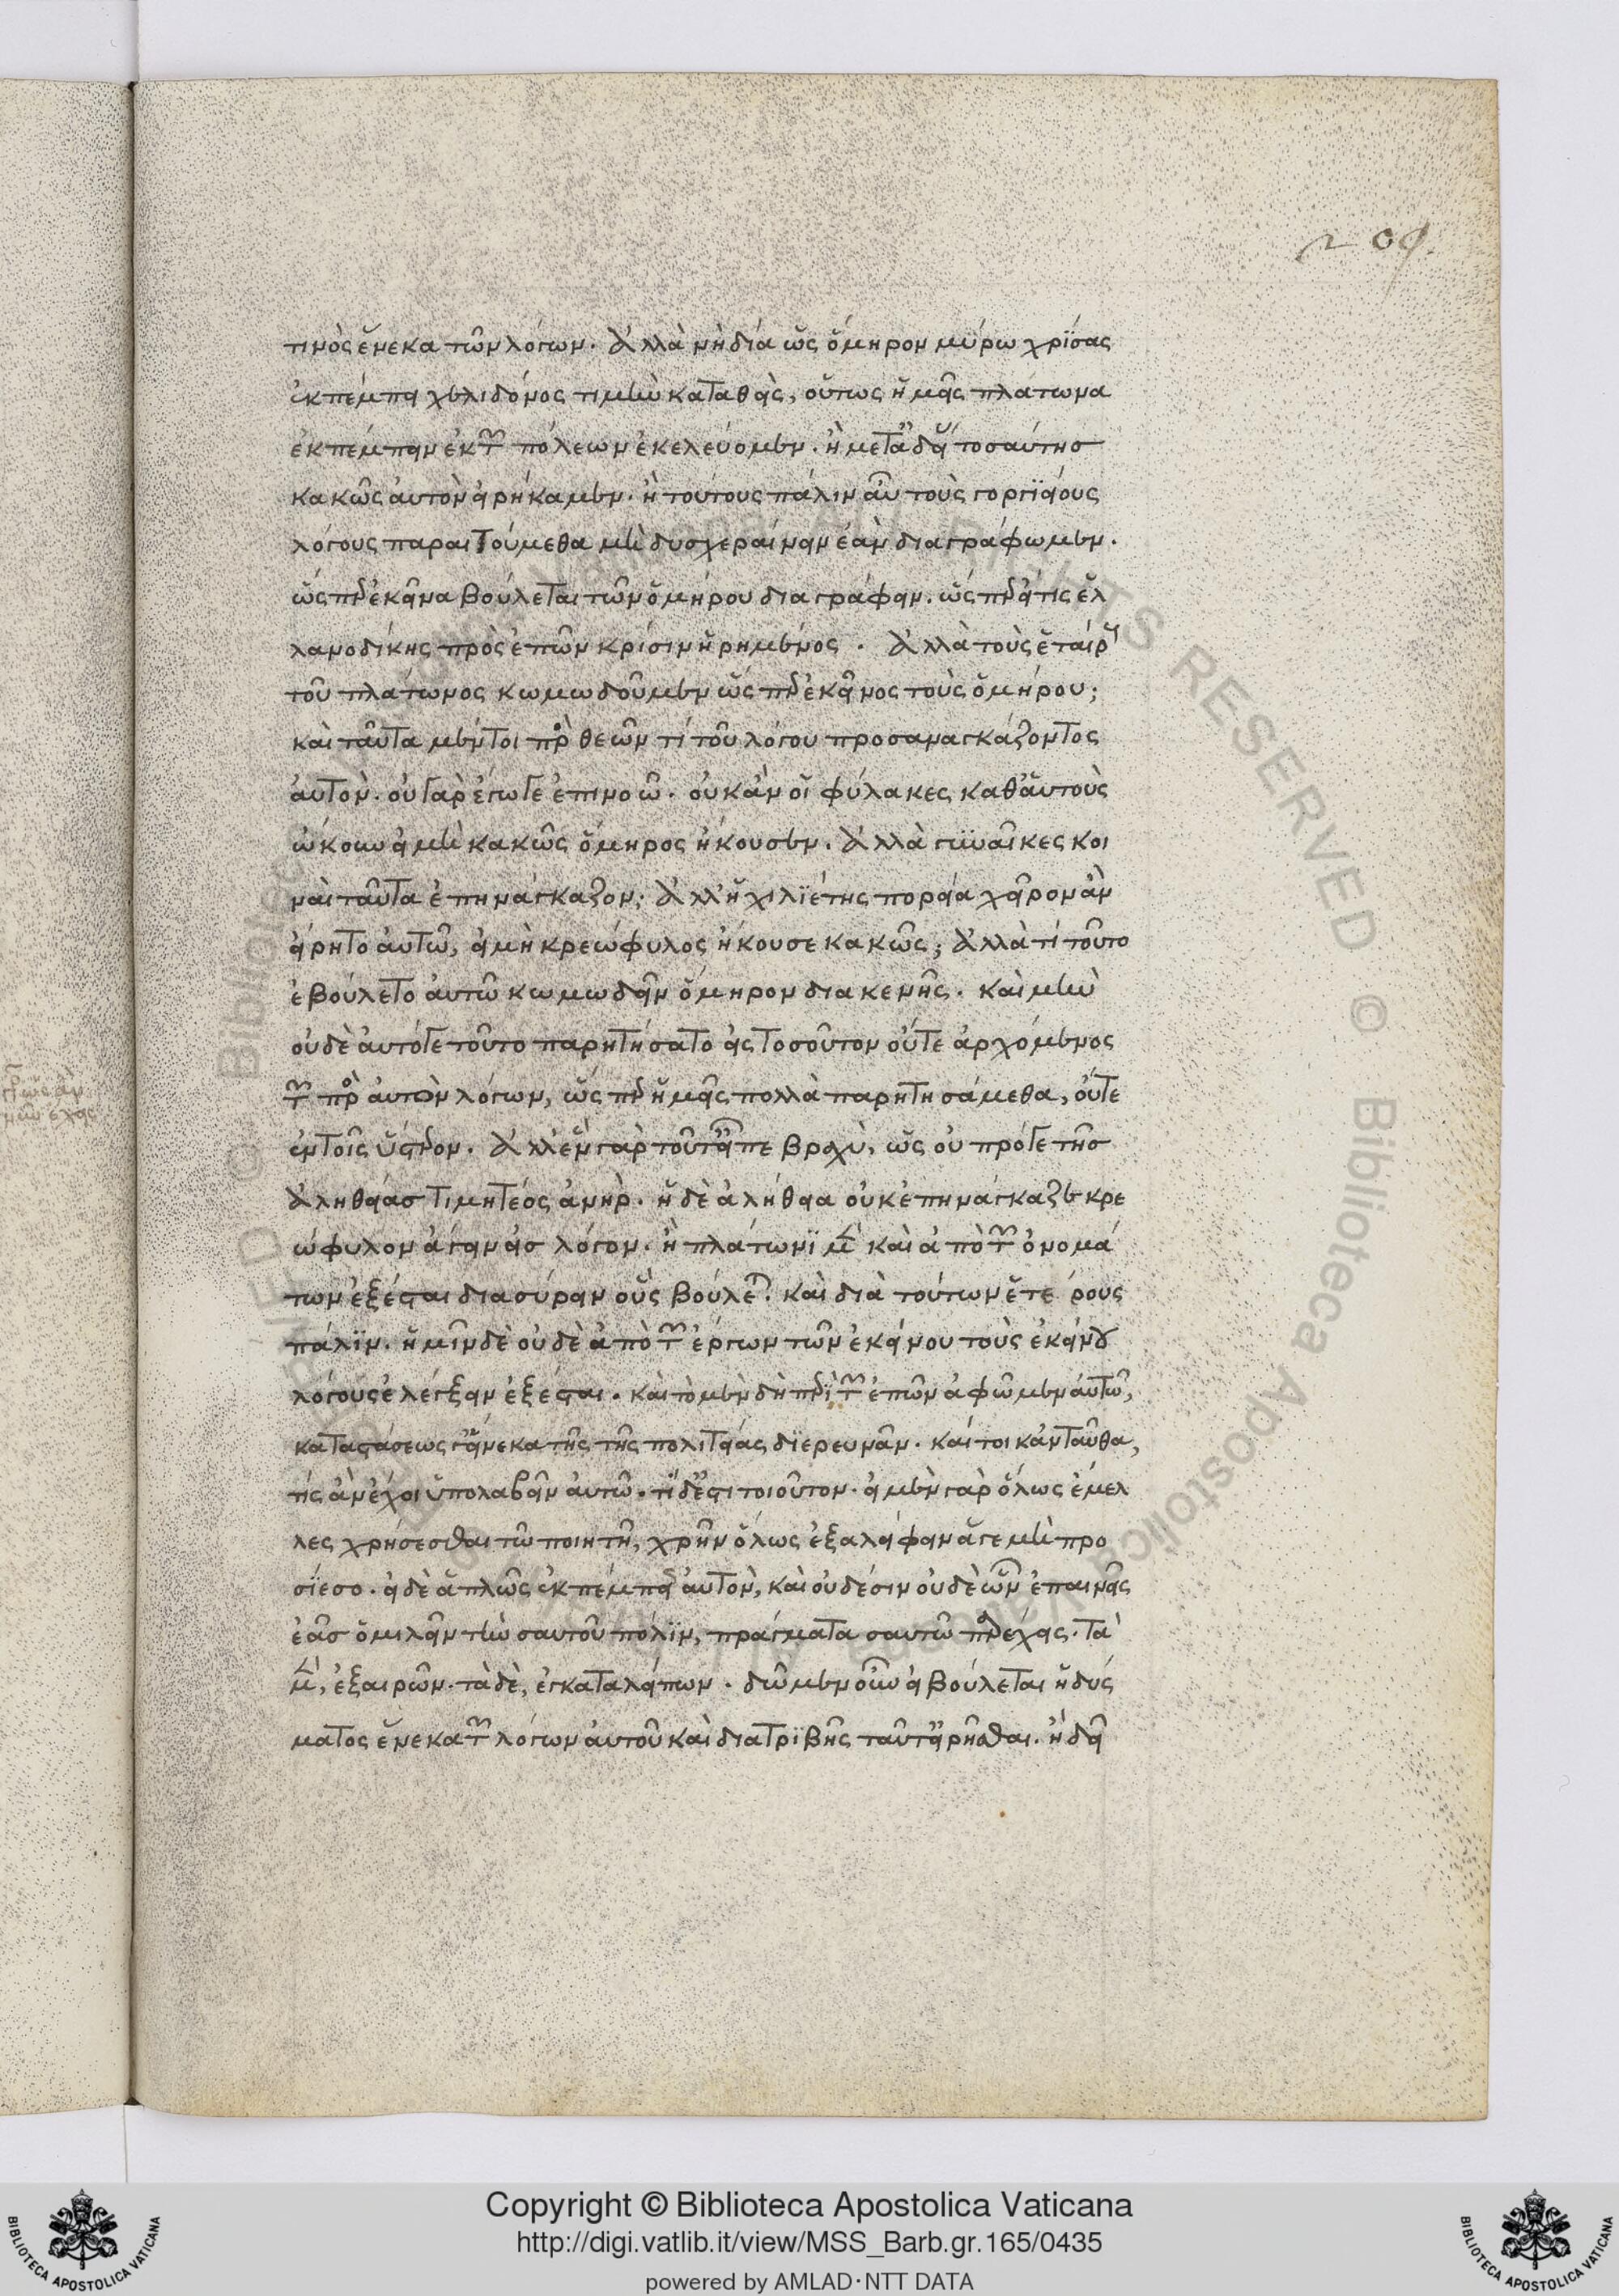 209.
τινὸς ἕνεκα τῶν λόγων. Ἀλλὰ νὴ δία ὡς ὅμηρον μύρω χρίσας
ἐκπέμπει χελιδόνος τιμὴν καταθεὶς, οὕτως ἡμεῖς πλάτωνα
ἐκπέμπειν ἐκ τῶν πόλεων ἐκελεύομεν. ἢ μετὰ ἀδείας τοσαύτησ
κακῶς αὐτὸν εἰρήκαμεν. ἢ τούτους πάλιν αὖ τοὺς γοργείους
λόγους παραιτούμεθα μὴ δυσχεραίνειν ἐὰν διαγράφωμεν.
ὥσπερ ἐκεῖνα βούλεται τῶν ὁμήρου διαγράφειν. ὥσπερ εἴ τις ἑλ
λανοδίκης πρὸς ἐπῶν κρίσιν ἡρημένος. Ἀλλὰ τοὺς ἑταίρους
τοῦ πλάτωνος κωμωδοῦμεν ὥσπερ ἐκεῖνος τοὺς ὁμήρου;
καὶ ταῦτα μέντοι πρὸς θεῶν τί τοῦ λόγου προσαναγκάζοντος
αὐτὸν. οὐ γὰρ ἔγωγε ἐπινοῶ. οὐκ ἂν οἱ φύλακες καθ' αὑτοὺς
ὤκουν εἰ μὴ κακῶς ὅμηρος ἤκουσεν. Ἀλλὰ γυναῖκες κοι
ναὶ ταῦτα ἐπηνάγκαζον; Ἀλλ' ἡ χιλιέτης πορεία χεῖρον ἂν
εἴρητο αὐτῶ, εἰ μὴ κρεώφυλος ἤκουσε κακῶς; Ἀλλὰ τί τοῦτο
ἐβούλετο αὐτῶ κωμωδεῖν ὅμηρον διακενῆς. καὶ μὴν
οὐδὲ αὐτόγε τοῦτο παρητήσατο εἰς τοσοῦτον οὔτε ἀρχόμενος
τῶν πρὸς αὐτὸν λόγων, ὥσπερ ἡμεῖς πολλὰ παρητησάμεθα, οὔτε
ἐν τοῖς ὕστερον. Ἀλλ' ἓν γὰρ τοῦτ' εἶπε βραχὺ, ὡς οὐ πρόγε τῆσ
ἀληθείασ τιμητέος ἀνήρ. ἡ δὲ ἀλήθεια οὐκ ἐπηνάγκαζε κρε
ώφυλον ἄγειν εἰσ λόγον. ἢ πλάτωνι μὲν καὶ ἀπὸ τῶν ὀνομά
των ἐξέσται διασύρειν οὓς βούλεται. καὶ διὰ τούτων ἑτέρους
πάλιν. ἡμῖν δὲ οὐδὲ ἀπὸ τῶν ἔργων τῶν ἐκείνου τοὺς ἐκείνου
λόγους ἐλέγξειν ἐξέσται. καὶ τὸ μὲν δὴ περὶ τῶν ἐπῶν ἀφῶμεν αὐτῶ,
καταστάσεως εἵνεκα τῆς τῆς πολιτείας διερευνᾶν. καίτοι κἀνταῦθα,
τίς ἂν ἔχοι ὑπολαβεῖν αὐτῶ. τί δ' ἔστι τοιοῦτον. εἰ μὲν γὰρ ὅλως ἔμελ
λες χρήσεσθαι τῶ ποιητῆ, χρῆν ὅλως ἐξαλείφειν ἅγε μὴ προ
σίεσο. εἰ δὲ ἁπλῶς ἐκπέμπεις αὐτὸν, καὶ οὐδέσιν οὐδὲ ὧν ἐπαινεῖς
ἐᾶσ ὁμιλεῖν τὴν σαυτοῦ πόλιν, πράγματα σαυτῶ παρέχεις. τὰ
μὲν, ἐξαιρῶν. τὰ δὲ, ἐγκαταλείπων. δῶμεν οὖν εἰ βούλεται ἡδύς
ματος ἕνεκα τῶν λόγων αὐτοῦ καὶ διατριβῆς ταῦτ' εἰρῆσθαι. ἢ δεῖ
Copyright © Biblioteca Apostolica Vaticana
http://digi.vatlib.it/view/MSS_Barb.gr.165/0435
powered by AMLAD·NTT DATA